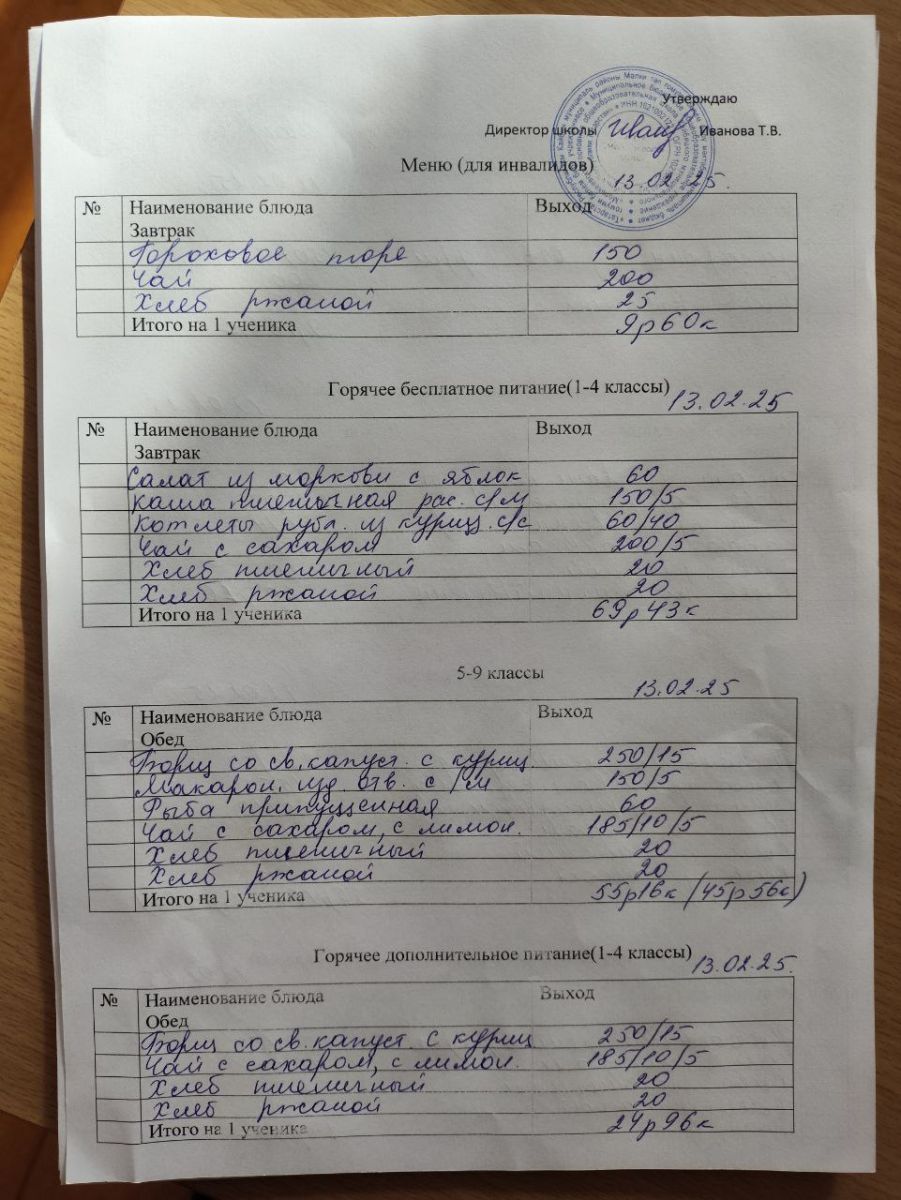 Утверждаю
Директор школы Иванова Т.В.
Меню (для инвалидов)
13.02.25.
№ Наименование блюда Выход
Завтрак
Гороховое пюре 150
Чай 200
Хлеб ржаной 25
Итого на 1 ученика 9р60к
Горячее бесплатное питание(1-4 классы)
13.02.25
№ Наименование блюда Выход
Завтрак
Салат из моркови с яблок 60
Каша пшеничная рас. с/м 150/5
Котлеты рубл. из куриц. с/с 60/40
Чай с сахаром 200/5
Хлеб пшеничный 20
Хлеб ржаной 20
Итого на 1 ученика 69р43к
5-9 классы
13.02.25
№ Наименование блюда Выход
Обед
Борщ со св. капуст. с куриц. 250/15
Макарон. изд. отв. с/м 150/5
Рыба припущенная 60
Чай с сахаром, с лимон. 185/10/5
Хлеб пшеничный 20
Хлеб ржаной 20
Итого на 1 ученика 55р16к (45р56к)
Горячее дополнительное питание(1-4 классы)
13.02.25.
№ Наименование блюда Выход
Обед
Борщ со св. капуст. с куриц 250/15
Чай с сахаром, с лимон. 185/10/5
Хлеб пшеничный 20
Хлеб ржаной 20
Итого на 1 ученика 24р96к